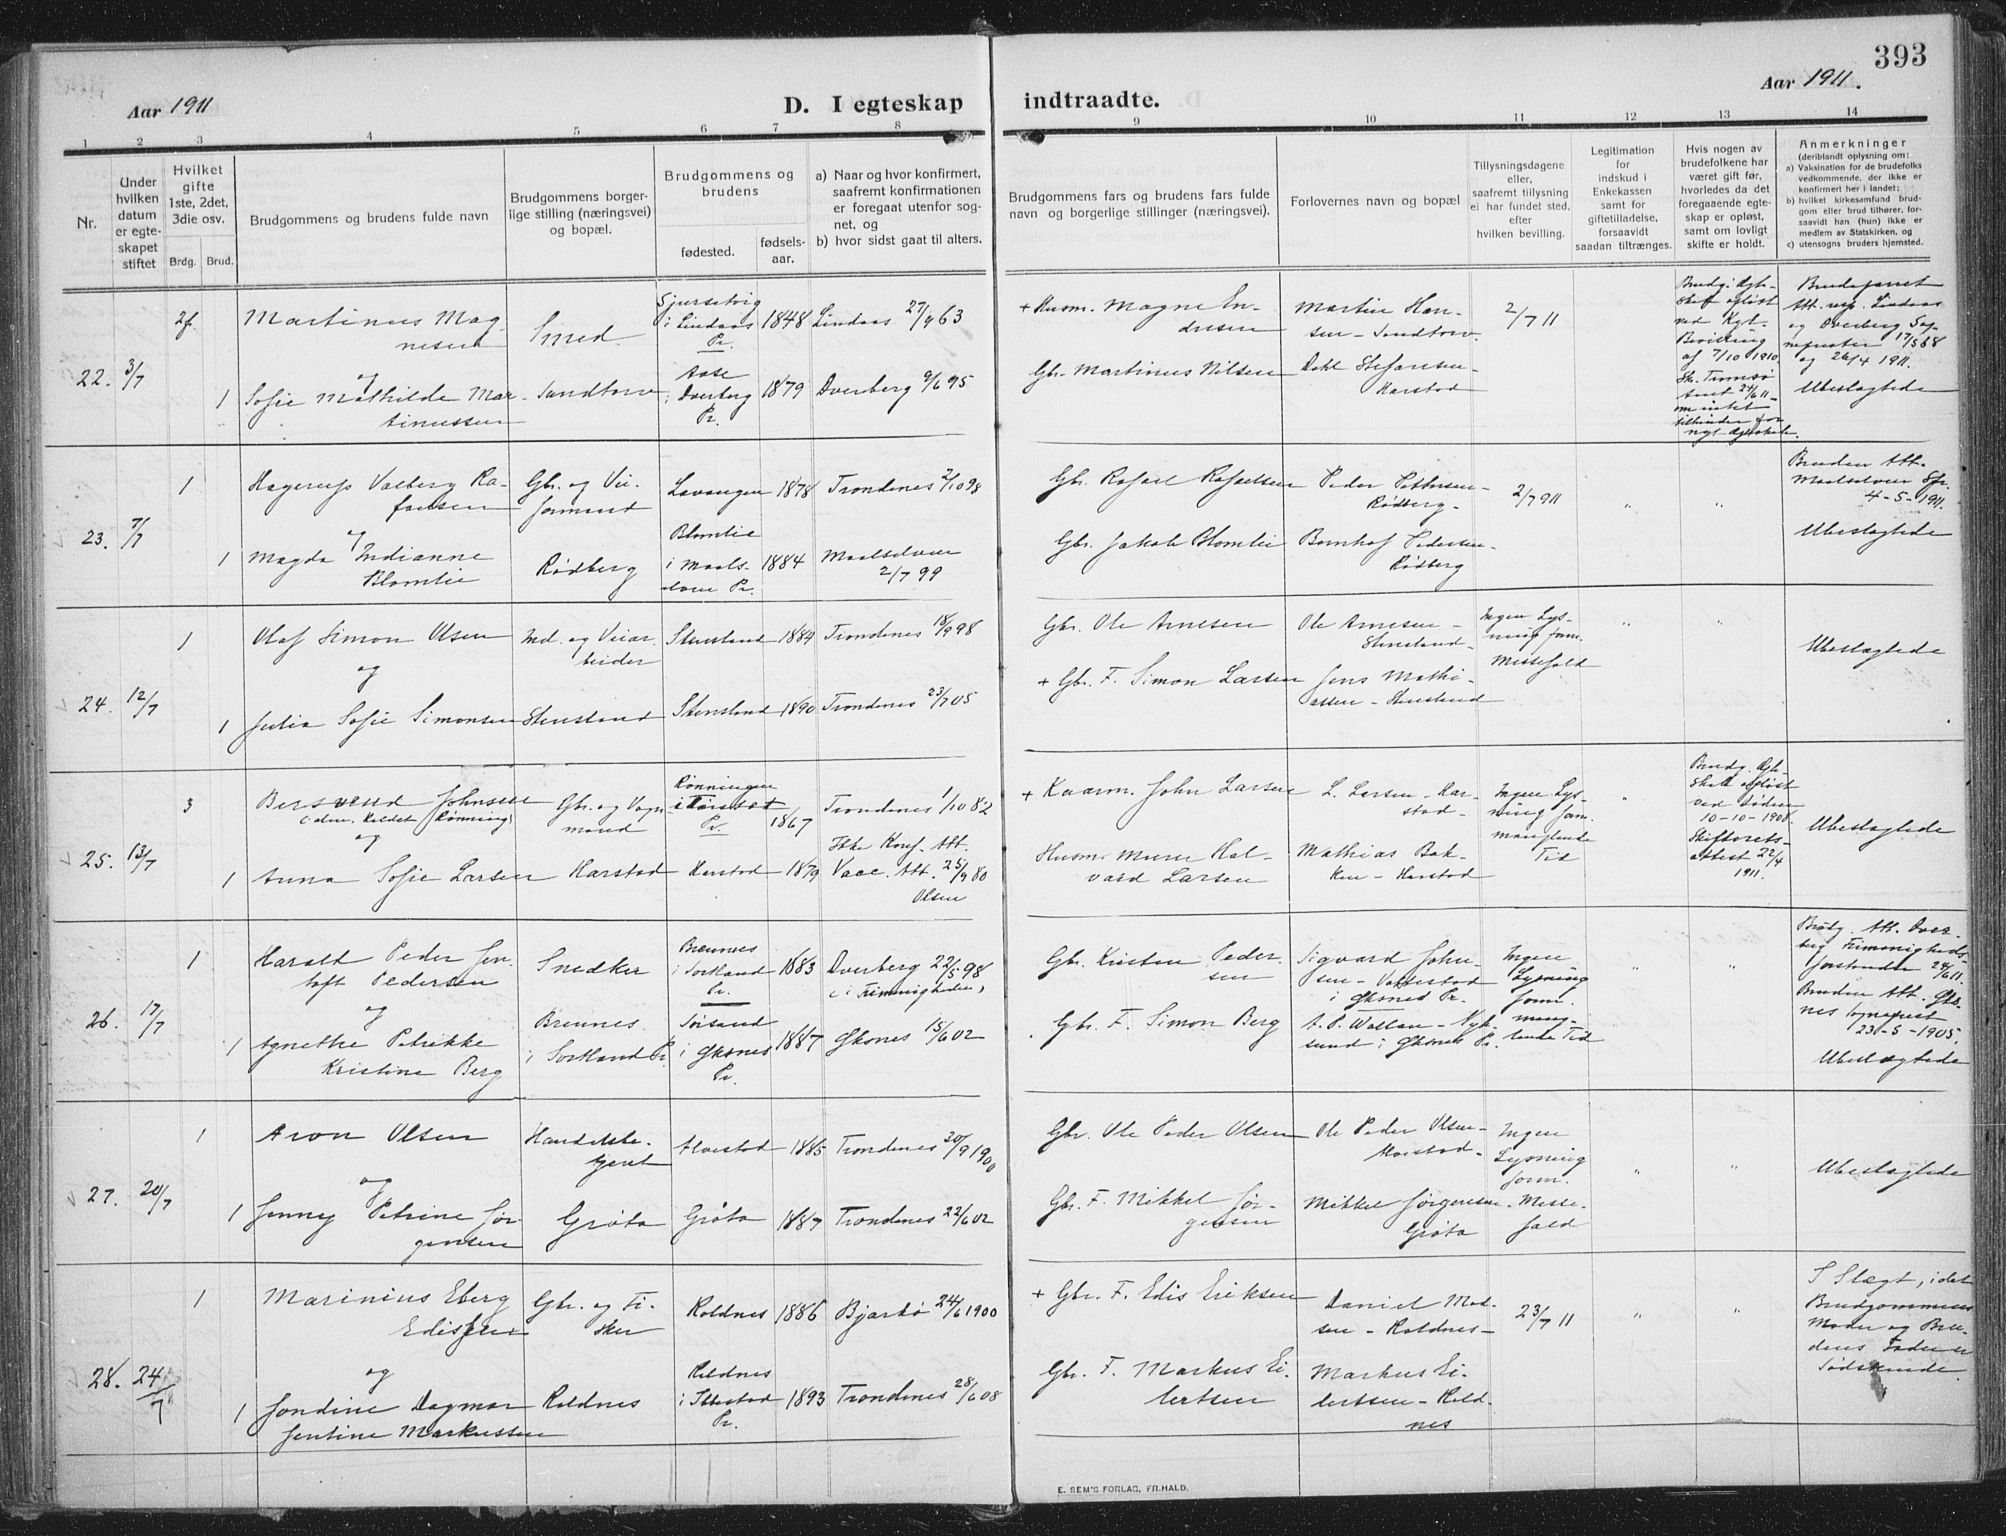 393
Aar 1911
D. I egteskap indtraadte.
Aar 1911.
1 2 3 4 5 6 7 8 9 10 11 12 13 14
Nr.
Under
hvilken
datum
er egte-
skapet
stiftet
Hvilket
gifte
1ste, 2det,
3die osv.
Brdg. Brud.
Brudgommens og brudens fulde navn
Brudgommens borger-
lige stilling (næringsvei)
og bopæl.
Brudgommens og
brudens
fødested.
fødsels-
aar.
a) Naar og hvor konfirmert,
saafremt konfirmationen
er foregaat utenfor sog-
net, og
b) hvor sidst gaat til alters.
Brudgommens fars og brudens fars fulde
navn og borgerlige stillinger (næringsvei).
Forlovernes navn og bopæl
Tillysningsdagene
eller,
saafremt tillysning
ei har fundet sted,
efter
hvilken bevilling.
Legitimation
for
indskud i
Enkekassen
samt for
giftetilladelse,
forsaavidt
saadan tiltrænges.
Hvis nogen av
brudefolkene har
været gift før,
hvorledes da det
foregaaende egte-
skap er opløst,
samt om lovligt
skifte er holdt.
Anmerkninger
(deriblandt oplysning om:
a) Vaksination for de brudefolks
vedkommende, der ikke er
konfirmert her i landet;
b) hvilket kirkesamfund brud-
gom eller brud tilhører, for-
saavidt han (hun) ikke er
medlem av Statskirken, og
c) utensogns bruders hjemsted.
22. 3/7
2f.
Martinus Mag-
nesen
Smed
i Lindaas
Pr.
1848
Lindaas 27/9 63
+ Husm. Magne En-
dresen
Martin Han-
sen - Sandtorv.
2/7 11
Brudg. Egte-
skap opløst
ved Kgl.
Bevilling
af 7/10 1910
Sk. Tromsø
24/6 11
om intet
tilhinder for
nyt Egteskab.
Att. resp. Lindaas
og Dverberg Sog-
neprester 17/5 68
og 26/4 1911.
Ubeslægtede
og
1
Sofie Mathilde Mar-
tinussen
Sandtorv
Aase
i Dverberg
Pr.
1879
Dverberg 9/6 95
Gbr. Martinus Nilsen
Dahl Stefansen -
Harstad
23. 7/7
1
Hagerup Valberg Ra-
faelsen
Gbr. og Vei-
formand
Lavangen
1878
Trondenes 2/10 98
Gbr. Rafael Rafaelsen
Peder Pettersen -
Rødberg -
2/7 911
Bruden Att.
Maalselven Spr.
4-5-1911.
Ubeslægtede
og
1
Magda Indianne
Blomlie
Rødberg
Blomlie
i Maals-
elven Pr.
1884
Maalselven
2/7 99
Gbr. Jakob Blomlie
Bernhof Pedersen -
Rødberg
24. 12/7
1
Olaf Simon Olsen
Ind. og Veiar-
beider
Stensland
1884
Trondenes 18/9 98
Gbr. Ole Arnesen
Ole Arnesen -
Stensland -
Ingen Lys-
ning form.
Messefald
Ubeslægtede
og
1
Julia Sofie Simonsen
Stensland
Stensland
1890
Trondenes 23/7 05
+ Gbr. F. Simon Larsen
Jens Mathi-
assen - Stensland
25. 13/7
3
Bersvend Johnsen
(alm. kaldet Rønning)
Gbr. og Vogn-
mand
Rønningen
Pr.
1867
Trondenes 1/10 82
+ Kaarm. John Larsen
L. Larsen - Har-
stad -
Ingen Lys-
ning form.
manglende
Tid
Brudg. Egte-
skab opløst
ved Døden
10-10-1908.
Skifterets-
attest 22/4
1911.
Ubeslægtede
og
1
Anna Sofie Larsen
Harstad
Harstad
1879
Ikke Konf. Att.
Vacc. Att. 25/9 80
Olsen
Husm. Murer Hal-
vard Larsen
Mathias Bak-
ken - Harstad
26. 17/7
1
Harald Peder Jen-
toft Pedersen
Snedker
Brennes
i Sortland
Pr.
1883
Dverberg 22/5 98
(i Frimenigheden)
Gbr. Kristen Peder-
sen
Sigvard John-
sen - Vottestad
i Øksnes Pr.
Ingen
Lysning
form.
mang-
lende Tid
Brudg. Att. Dver-
berg Frimenigheds-
forstander 24/6 11.
Bruden Att. Øks-
nes Sogneprest
23-5-1905.
Ubeslægtede
og
1
Agnethe Petrikke
Kristine Berg
Brennes
i Sortland Pr.
Tøsand
i Øksnes
Pr.
1887
Øksnes 15/6 02
Gbr. F. Simon Berg
A. P. Wollan - Nyk-
sund i Øksnes Pr.
27. 20/7
1
Aron Olsen
Handelsbe-
tjent
Alvestad
1885
Trondenes 30/9 1900
Gbr. Ole Peder Olsen
Ole Peder Olsen -
Alvestad -
Ingen
Lysning
form.
Messe-
fald
Ubeslægtede
og
1
Jenny Petrine Jør-
gensen
Grøta
Grøta
1887
Trondenes 22/6 02
Gbr. F. Mikkel Jør-
gensen
Mikkel Jørgensen -
Grøta
28. 24/7
1
Marinius Eberg
Edissen
Gbr. og Fi-
sker
Roldnes
1886
Bjarkø 24/6 1900
+ Gbr. F. Edis Eriksen
Daniel Mad-
sen - Roldnes -
23/7 11
I Slægt, idet
Brudgommens
Moder og Bru-
dens Fader er
Sødskende.
og
1
Jondine Dagmar
Jentine Markussen
Roldnes
Roldnes
i Ibbestad
Pr.
1893
Trondenes 28/6 08
Gbr. F. Markus Ei-
lertsen
Markus Ei-
lertsen - Rold-
nes
E. SEM'S FORLAG, FR.HALD.